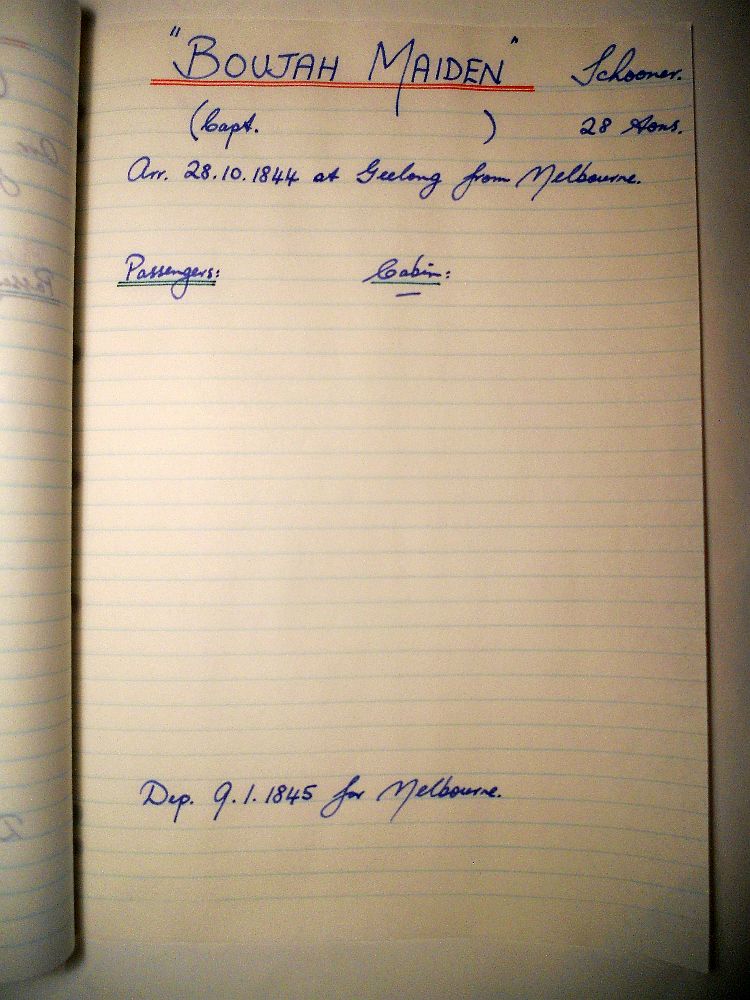 "BOUJAH MAIDEN" Schooner.
(Capt. ) 28 tons.
Arr. 28.10.1844 at Geelong from Melbourne.
Passengers: Cabin:
—
Dep. 9.1.1845 for Melbourne.